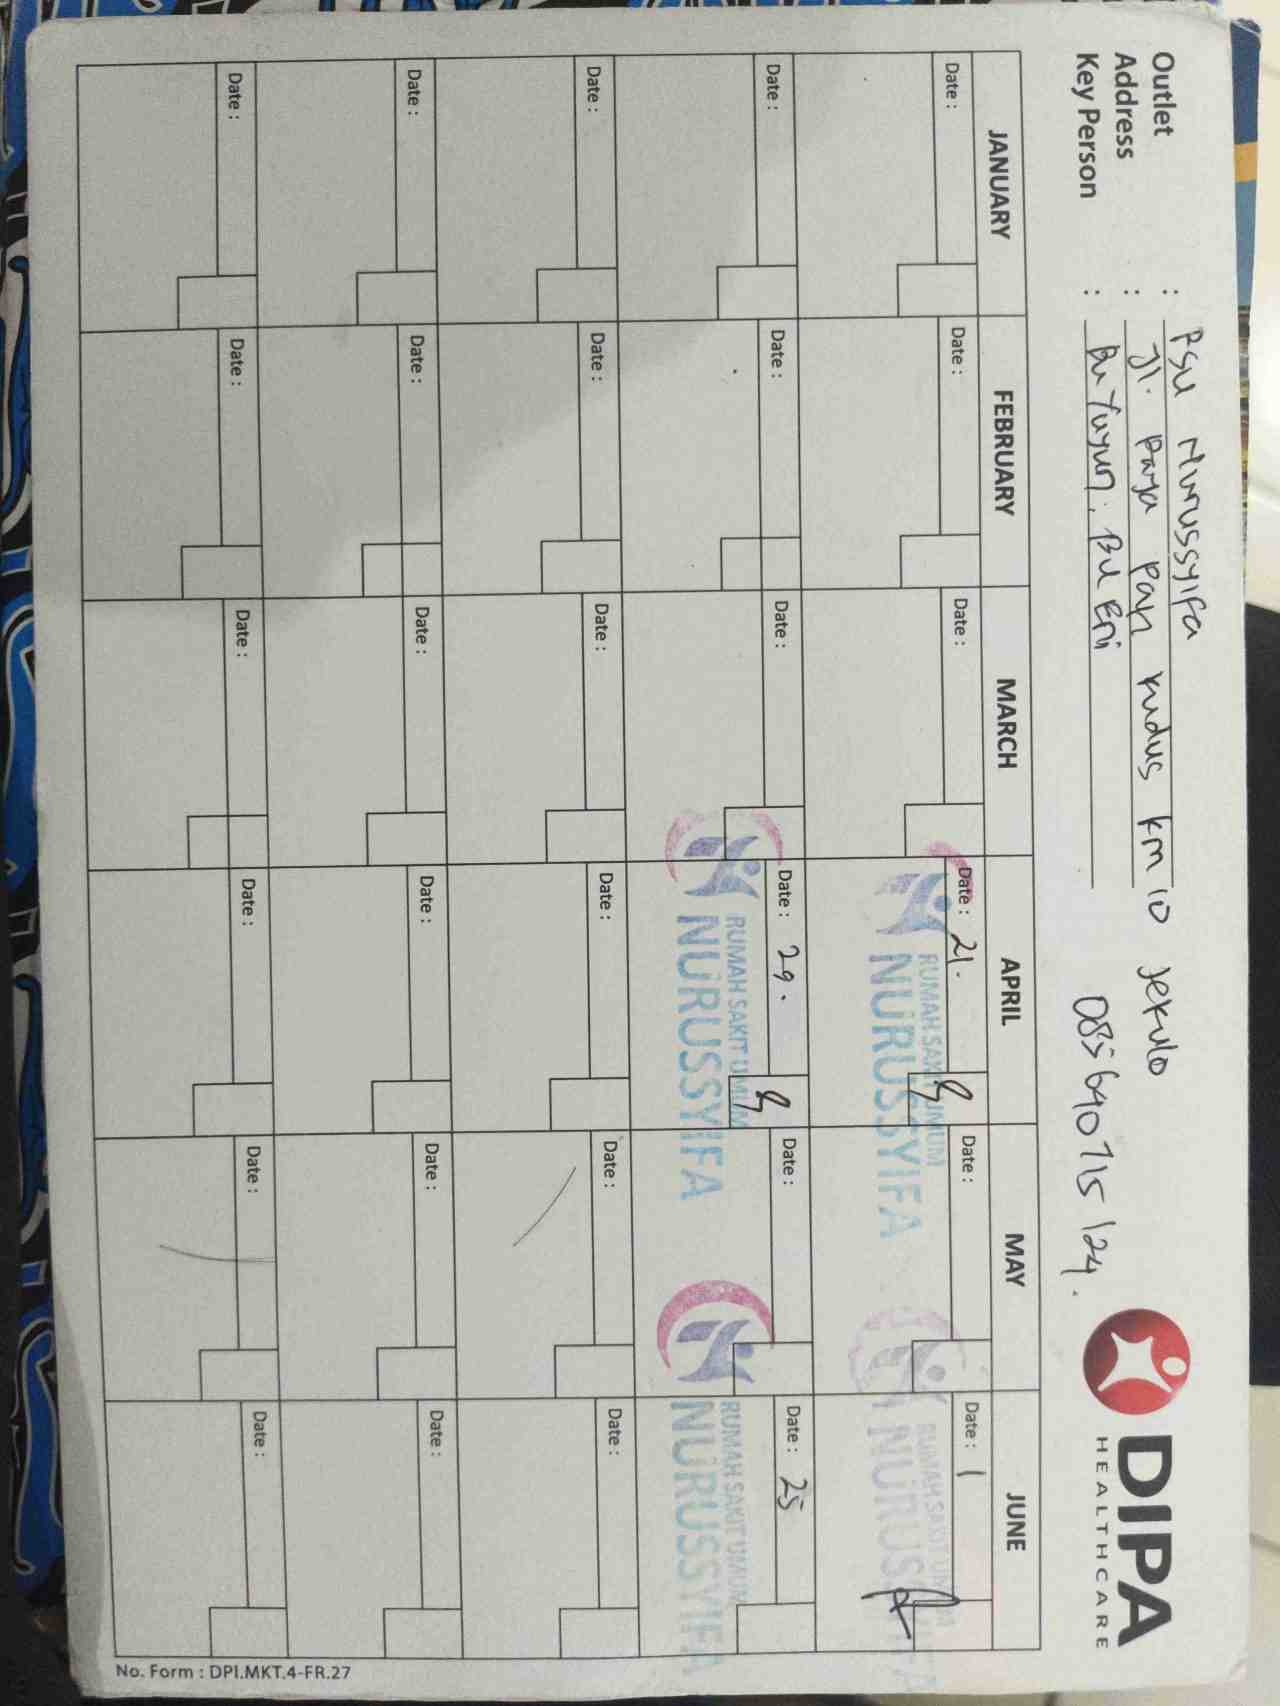 Outlet : RSU Nurussyifa
Address : Jl. Raya Pati Kudus km 10 Jekulo
Key Person : Bu Yuyun, Bu Eni 085640715124.
DIPA
HEALTHCARE
JANUARY FEBRUARY MARCH APRIL MAY JUNE
Date : Date : Date : Date : 21. Date : Date : 1
RUMAH SAKIT UMUM RUMAH SAKIT UMUM
NURUSSYIFA NURUSSYIFA
Date : Date : Date : Date : 29. Date : Date : 25
RUMAH SAKIT UMUM RUMAH SAKIT UMUM
NURUSSYIFA NURUSSYIFA
Date : Date : Date : Date : Date : Date :
Date : Date : Date : Date : Date : Date :
Date : Date : Date : Date : Date : Date :
No. Form : DPI.MKT.4-FR.27